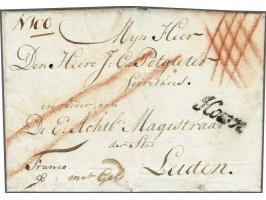 N 10
Myn Heer
Den Heere J. C. Polgieter
Secretaris
en verder aan
De E. Achtb. Magistraat
Hoorn
der Stad
Franco
Leiden.
met Geld